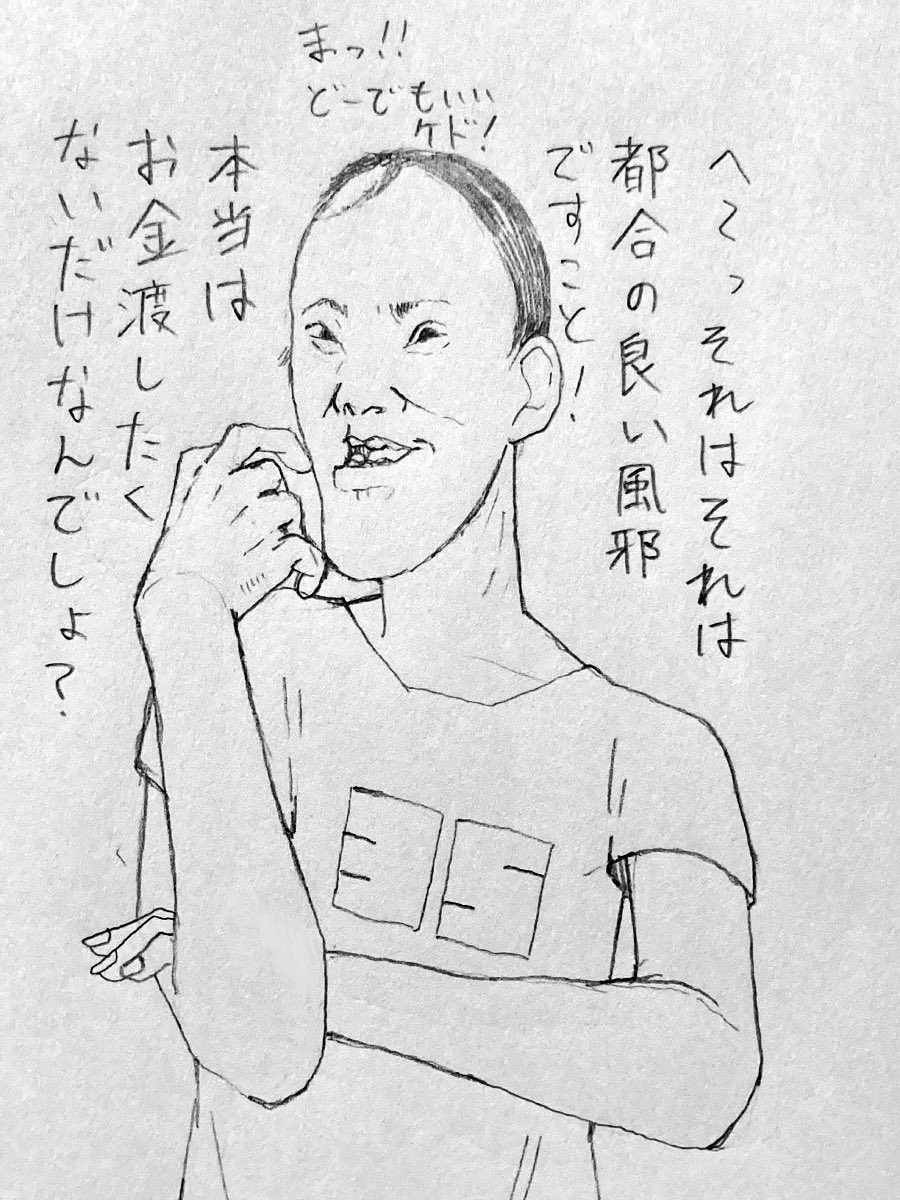 へぇっそれはそれは
都合の良い風邪
ですこと！
まっ!!
どーでもいい
ケド！
本当は
お金渡したく
ないだけなんでしょ？
35